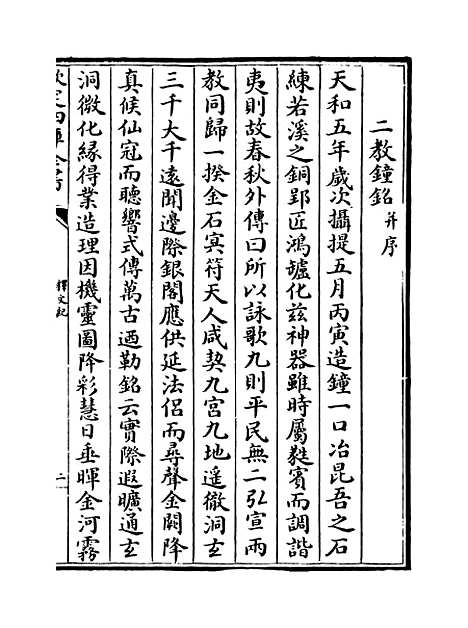 二教鐘銘并序
天和五年歲次攝提五月丙寅造鐘一口冶昆吾之石
練若溪之銅郢匠鴻罏化兹神器雖時屬蕤賓而調諧
夷則故春秋外傳曰所以詠歌九則平民無二弘宣兩
教同歸一揆金石冥符天人咸契九宫九地遥徹洞𤣥
三千大千遠聞邊際銀閣應供延法侣而尋聲金闕降
真候仙冠而聽響式傳萬古迺勒銘云實際遐曠通𤣥
洞微化縁得業造理因機靈圖降彩慧日垂暉金河霧
欽定四庫全書
釋文紀
二